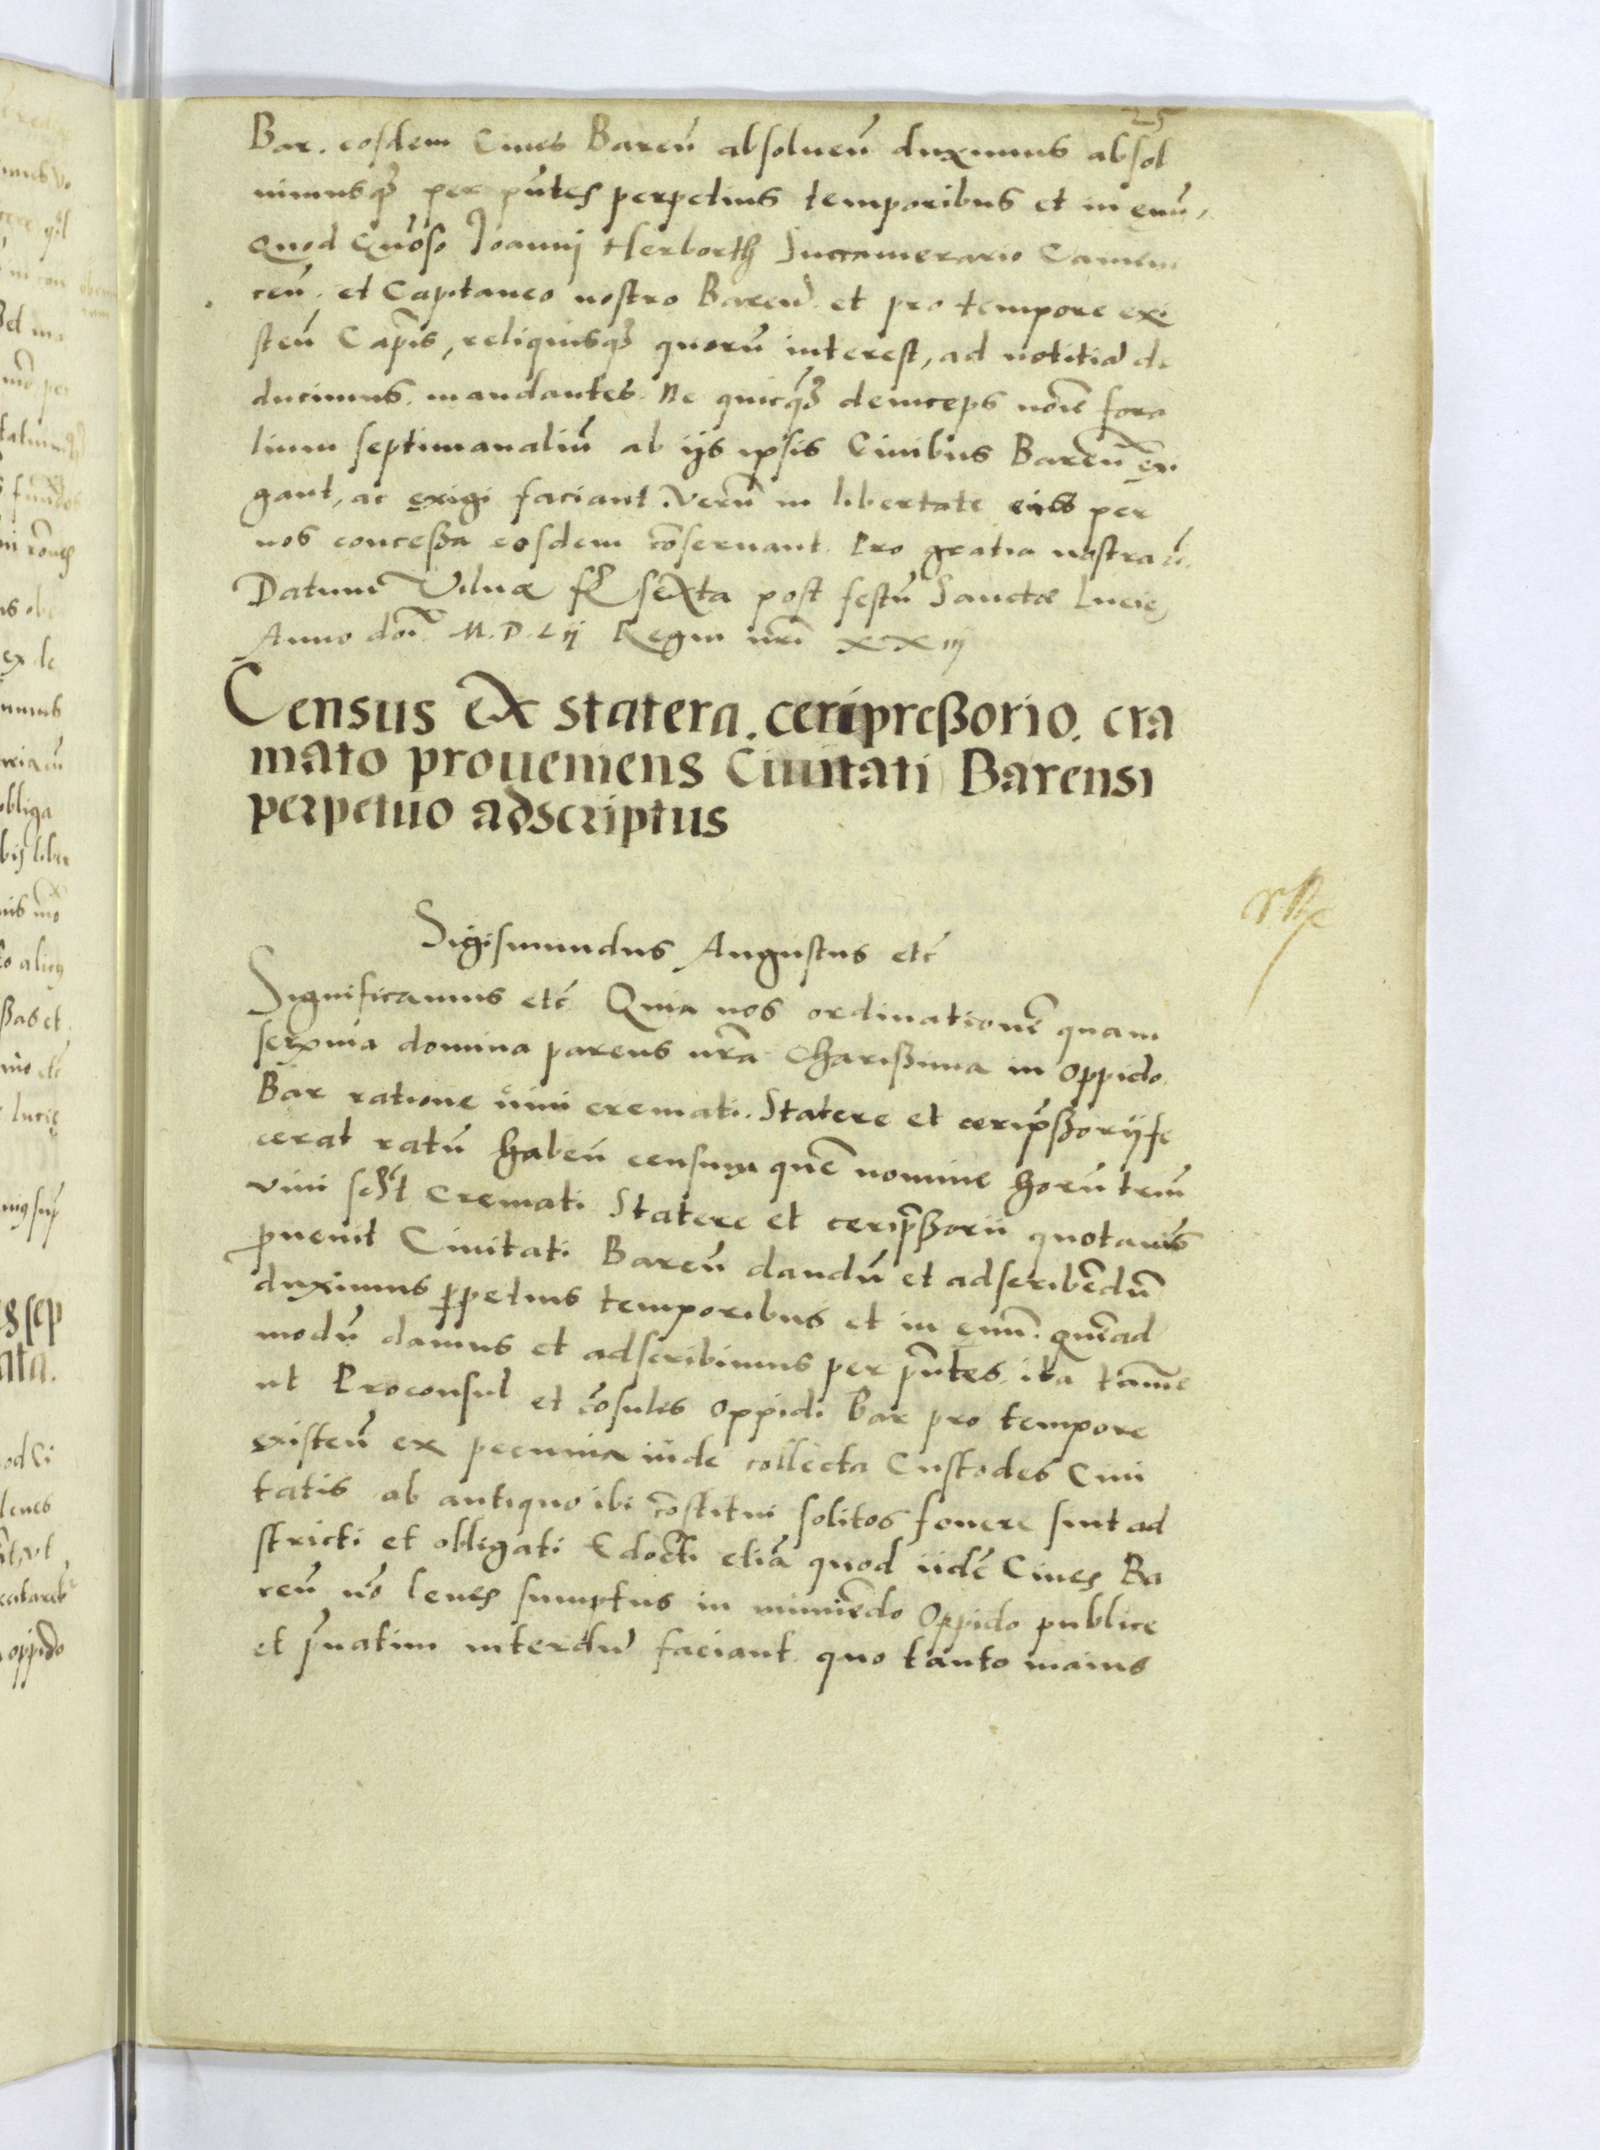 25
Bar. eosdem Ciues Bareñ absolueñ duximus absol
uimusq per pñtes perpetuis temporibus et in euũ,
Quod Gñoso Joanni Herborth Succamerario Camene
ceñ. et Capitaneo nostro Bareñ. et pro tempore exi
steñ Capñis, reliquisq quorũ interest, ad notitiã de
ducimus. mandantes. Ne quicq deinceps noĩe foro
lium septimanaliũ ab ijs ipsis Ciuibus Bareñ exi
gant, ac exigi faciant. Verũ in libertate eius per
nos conceßa eosdem cõseruant. Pro gratia nostra
Datum Vilnæ fr sexta post festũ Sanctæ Lucie
Anno doĩ M.D.Lij Regni nr̃i XXiij
Census ex statera. ceripreßorio. cra
mato proueniens Ciuitati Barensi
perpetuo adscriptus
Sigismundus Augustus etc̃
Significamus etc̃ Quia nos ordinationẽ quam
serma domina parens nr̃a Charißima in oppido
Bar ratione uini cremati. Statere et cerip̃ßorij fe
cerat ratũ habeñ censum quẽ nomine horũ triũ
vini sclt Cremati Statere et cerip̃ßorii quotañis
ꝓuenit Ciuitati Bareñ dandũ et adscribẽdũ
duximus ꝑpetuis temporibus et in euũ. quẽad
modũ damus et adscribimus per p̃ntes. ita tamẽ
ut Proconsul et cõsules oppidi Bar pro tempore
existeñ ex pecunia inde collecta Custodes Ciui
tatis ab antiquo ibi cõstitui solitos fouere sint ad
stricti et obligati Edocti etiã quod iidẽ Ciues Ba
reñ nõ leues sumptus in muniẽdo Oppido publice
et p̃uatim interdũ faciant quo tanto maius